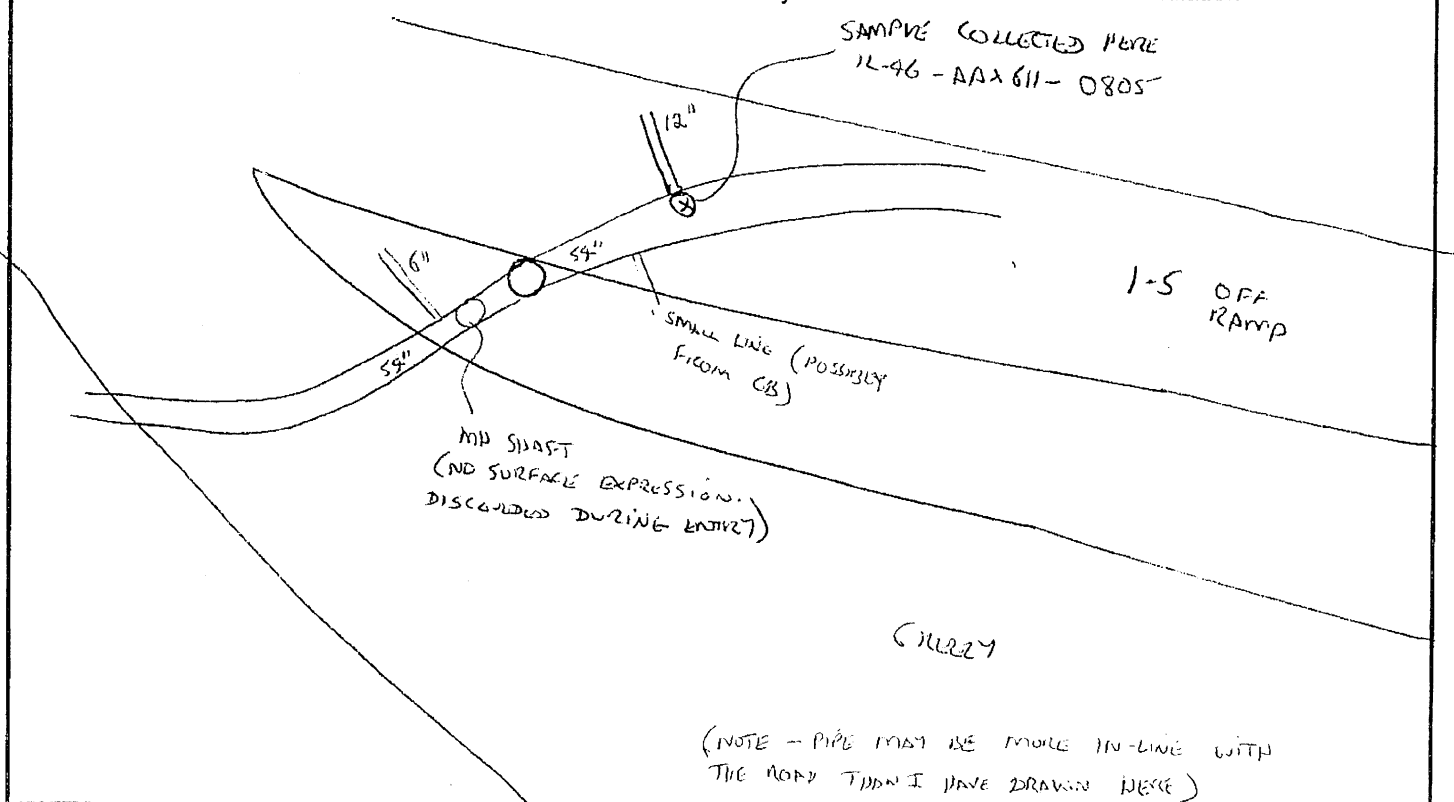 SAMPLE COLLECTED HERE
IL-46-AAX611-0805
12"
54"
6"
54"
I-5 OFF
RAMP
SMALL LINE (POSSIBLY
FROM CB)
MH SHAFT
(NO SURFACE EXPRESSION.
DURING ENTRY)
(NOTE - PIPE MAY BE MORE IN-LINE WITH
THE ROAD THAN I HAVE DRAWN HERE)